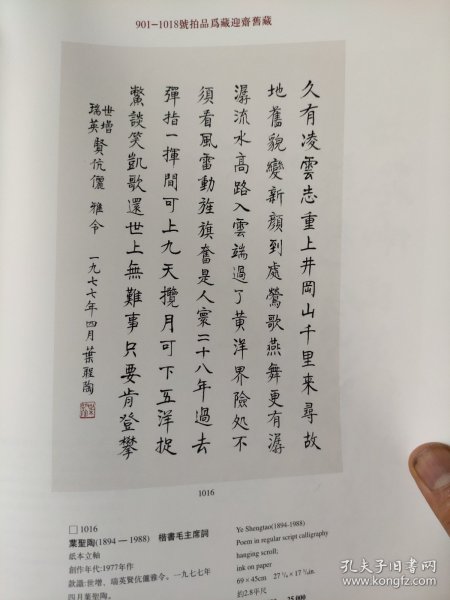 901-1018號拍品爲藏迎齋舊藏
久有凌雲志重上井岡山千里來尋故
地舊貌變新顏到處鶯歌燕舞更有潺
潺流水高路入雲端過了黃洋界險処不
須看風雷動旌旗奮是人寰三十八年過去
彈指一揮間可上九天攬月可下五洋捉
鱉談笑凱歌還世上無難事只要肯登攀
世增
瑞英賢伉儷 雅令 一九七七年四月葉聖陶
1016
□1016
葉聖陶(1894 — 1988) 楷書毛主席詞
紙本立軸
創作年代:1977年作
款識:世增、瑞英賢伉儷雅令。一九七七年
四月葉聖陶。
Ye Shengtao(1894-1988)
Poem in regular script calligraphy
hanging scroll;
ink on paper
69×45cm 27 1/8×17 3/4in.
約2.8平尺
25,000
孔夫子旧书网